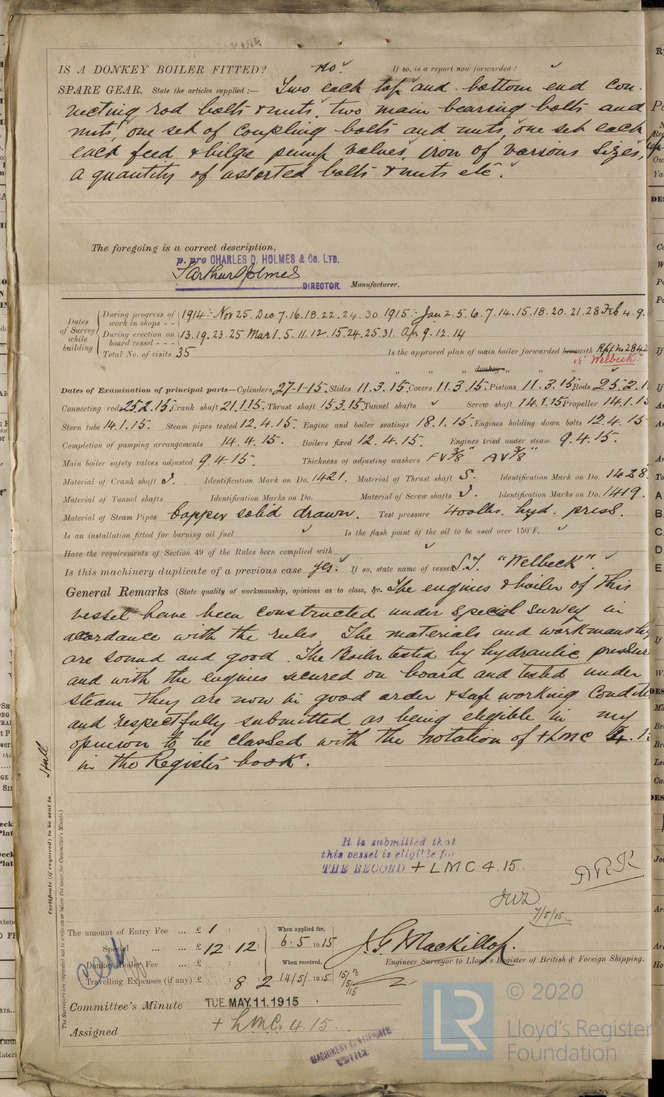 IS A DONKEY BOILER FITTED? No. If so, is a report now forwarded?
SPARE GEAR. State the articles supplied :— Two each top and bottom end con-
necting rod bolts & nuts, two main bearing bolts and
nuts, one set of coupling bolts and nuts, one set each
each feed & bilge pump valves, iron of various sizes,
a quantity of assorted bolts & nuts etc.
The foregoing is a correct description,
p. pro CHARLES D. HOLMES & Co. LTD.
Arthur Holmes
DIRECTOR Manufacturer.
Dates of Survey while building
During progress of work in shops - - 1914: Nov 25. Dec 7.16.18.22.24.30 1915: Jan 2.5.6.7.14.15.18.20.21.28 Feb 4.9.
During erection on board vessel - - - 13.19.23.25 Mar 1.5.11.12.15.24.25.31. Apr 9.12.14
Total No. of visits 35 Is the approved plan of main boiler forwarded with
"Welbeck"
" " " donkey " "
Dates of Examination of principal parts—Cylinders 27-1-15. Slides 11.3.15. Covers 11.3.15. Pistons 11.3.15. Rods 25.2.1
Connecting rods 25.2.15. Crank shaft 21.1.15. Thrust shaft 15.3.15. Tunnel shafts Screw shaft 14.1.15. Propeller 14.1.1
Stern tube 14.1.15. Steam pipes tested 12.4.15. Engine and boiler seatings 18.1.15. Engines holding down bolts 12.4.15
Completion of pumping arrangements 14.4.15. Boilers fixed 12.4.15. Engines tried under steam 9.4.15.
Main boiler safety valves adjusted 9.4.15. Thickness of adjusting washers F V 3/8" A V 3/8"
Material of Crank shaft S. Identification Mark on Do. 1421. Material of Thrust shaft S. Identification Mark on Do. 1428
Material of Tunnel shafts Identification Marks on Do. Material of Screw shafts S. Identification Marks on Do. 1419.
Material of Steam Pipes Copper solid drawn. Test pressure 400 lbs. hyd. press.
Is an installation fitted for burning oil fuel Is the flash point of the oil to be used over 150°F.
Have the requirements of Section 49 of the Rules been complied with
Is this machinery duplicate of a previous case yes. If so, state name of vessel S.T. "Welbeck".
General Remarks (State quality of workmanship, opinions as to class, &c. The engines & boiler of this
vessel have been constructed under special survey in
accordance with the rules. The materials and workmanship
are sound and good. The Boiler tested by hydraulic pressure
and with the engines secured on board and tested under
steam They are now in good order & safe working condition
and respectfully submitted as being eligible in my
opinion to be classed with the notation of + LMC 4.15
in the Register book.
It is submitted that
this vessel is eligible for
THE RECORD + LMC 4.15.
7/5/15.
Certificate (if required) to be sent to Hull
The amount of Entry Fee ... £ 1 : : When applied for,
Special ... £ 12 : 12 : 6.5.1915
Donkey Boiler Fee ... £ : : When received,
Travelling Expenses (if any) £ : 8 2 14/5/1915
J. G. Mackillop.
Engineer Surveyor to Lloyd's Register of British & Foreign Shipping.
Committee's Minute TUE. MAY. 11. 1915
Assigned + LMC. 4.15.
MACHINERY CERTIFICATE
WRITTEN
LR
© 2020
Lloyd's Register
Foundation